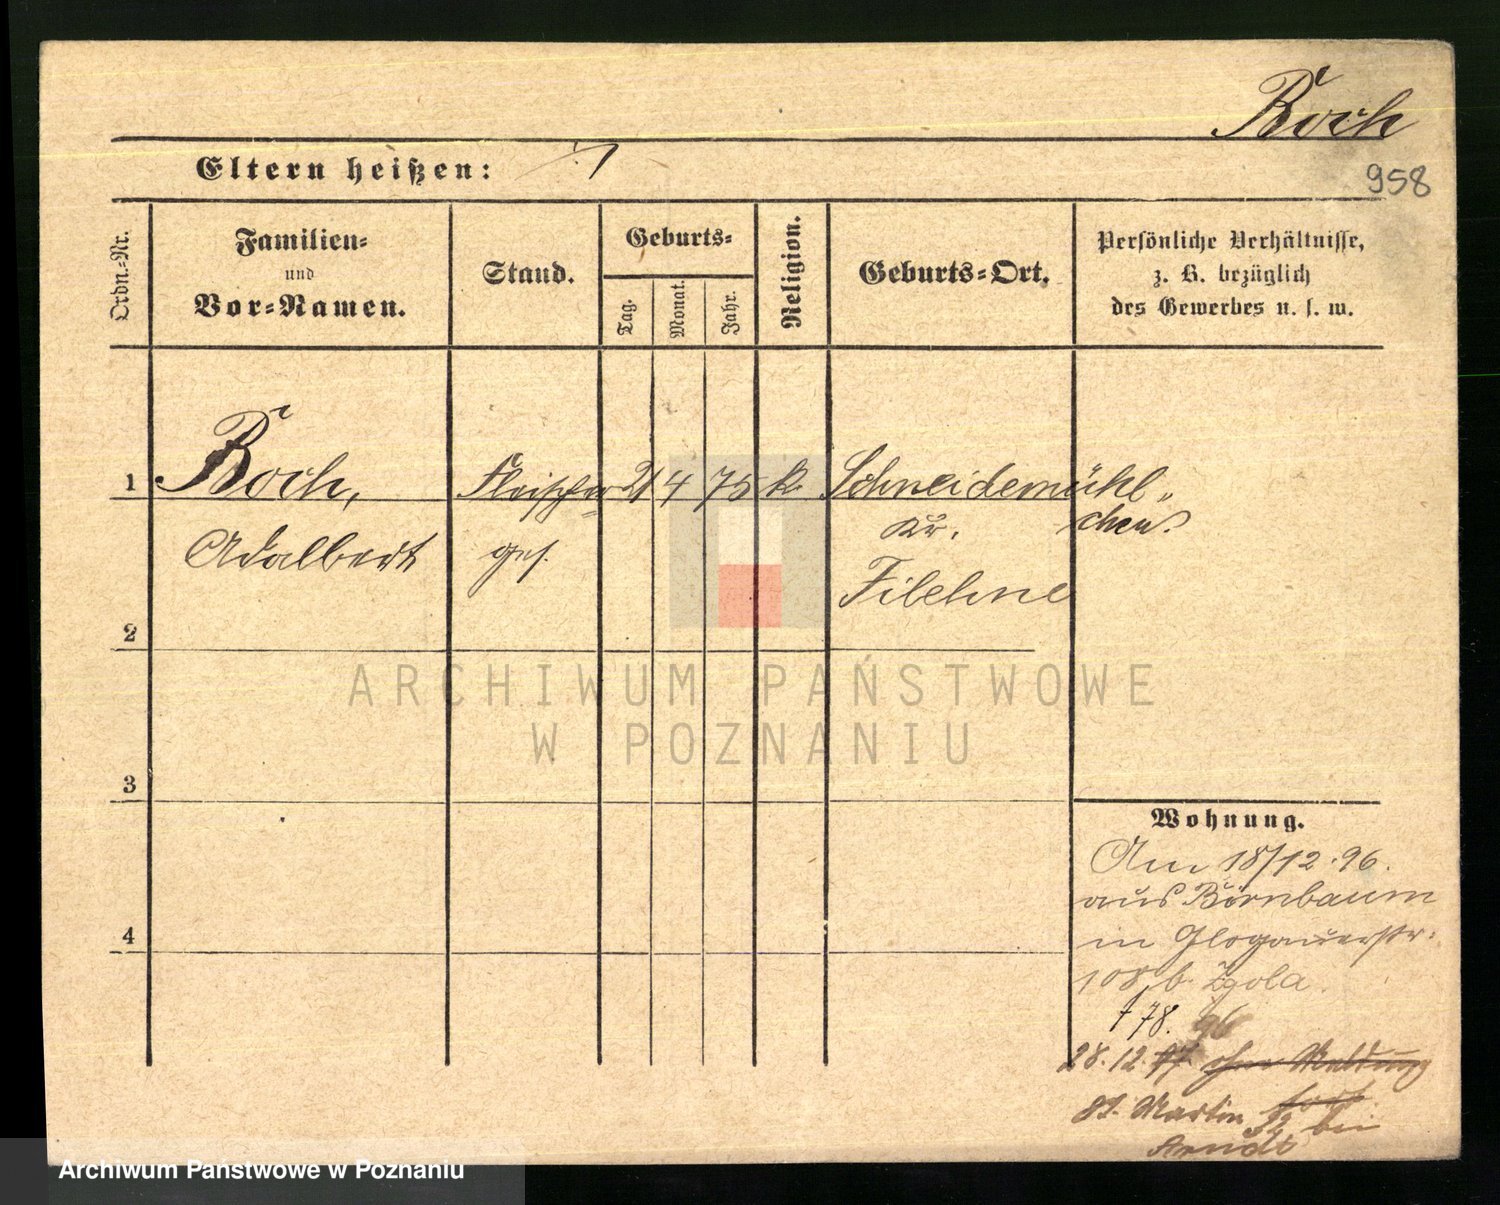 Boch
958
Eltern heißen:
Ordn.-Nr.
Familien-
und
Vor-Namen.
Stand.
Geburts-
Tag.
Monat.
Jahr.
Religion.
Geburts-Ort.
Persönliche Verhältnisse,
z. B. bezüglich
des Gewerbes u. s. w.
1 Boch, Fleischer 21 4 75 k. Schneidemühl„
Adalbert ges. Kr. chen.
Filehne
2
3
4
Wohnung.
Am 18/12.96.
aus Birnbaum
in Glogauerstr.
108 b. Zgola.
f 78. 96
28.12. 97 ohne Meldung
fort
St. Martin 32 bei
Arndt
ARCHIWUM PAŃSTWOWE
W POZNANIU
Archiwum Państwowe w Poznaniu